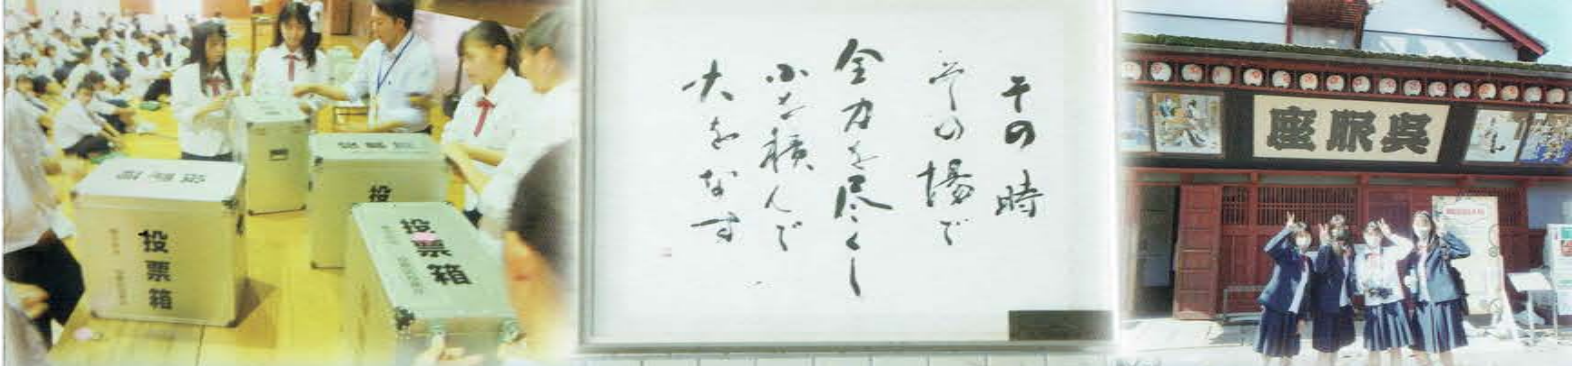 投票箱
投票箱
投
その時
その場で
全力を尽くし
小を積んで
大をなす
呉服座